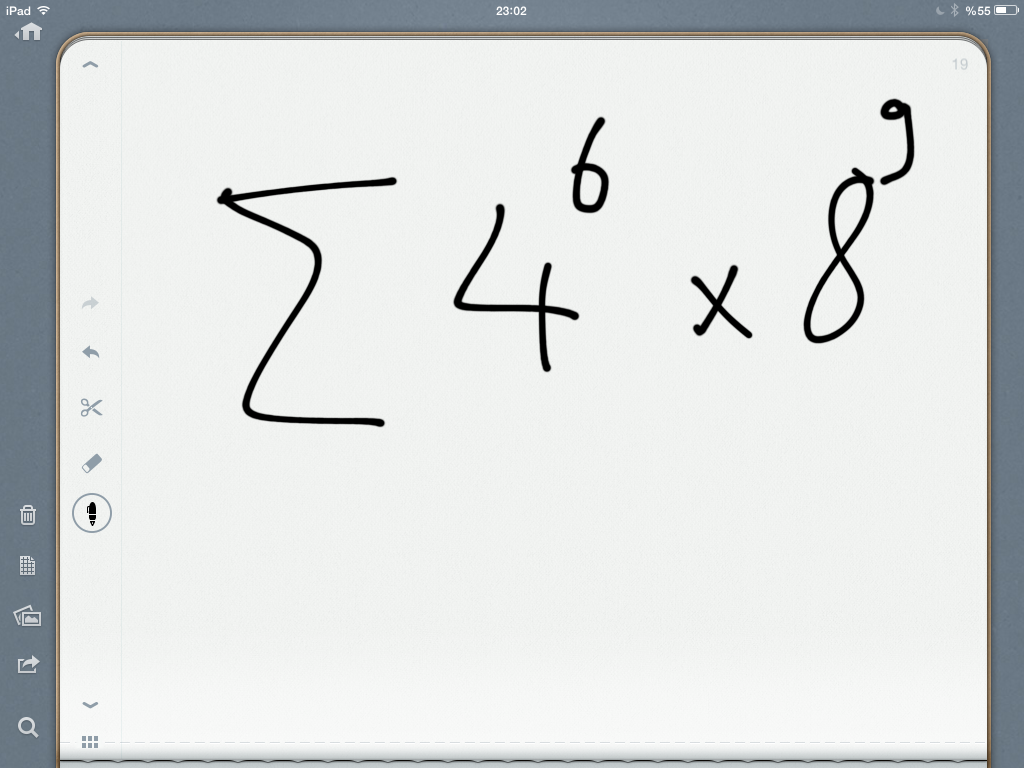 iPad 23:02 %55
19
∑ 4⁶ × 8⁹